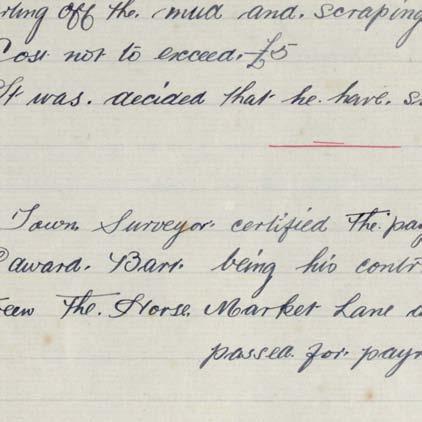 rting off the. mud and. scraping
Cost not to exceed. £5
It was. decided that he. have. s
Town Surveyor. certified The. pay
Edward. Barr. being his contr
reen The. Horse. Market Lane a
passed. for. paym